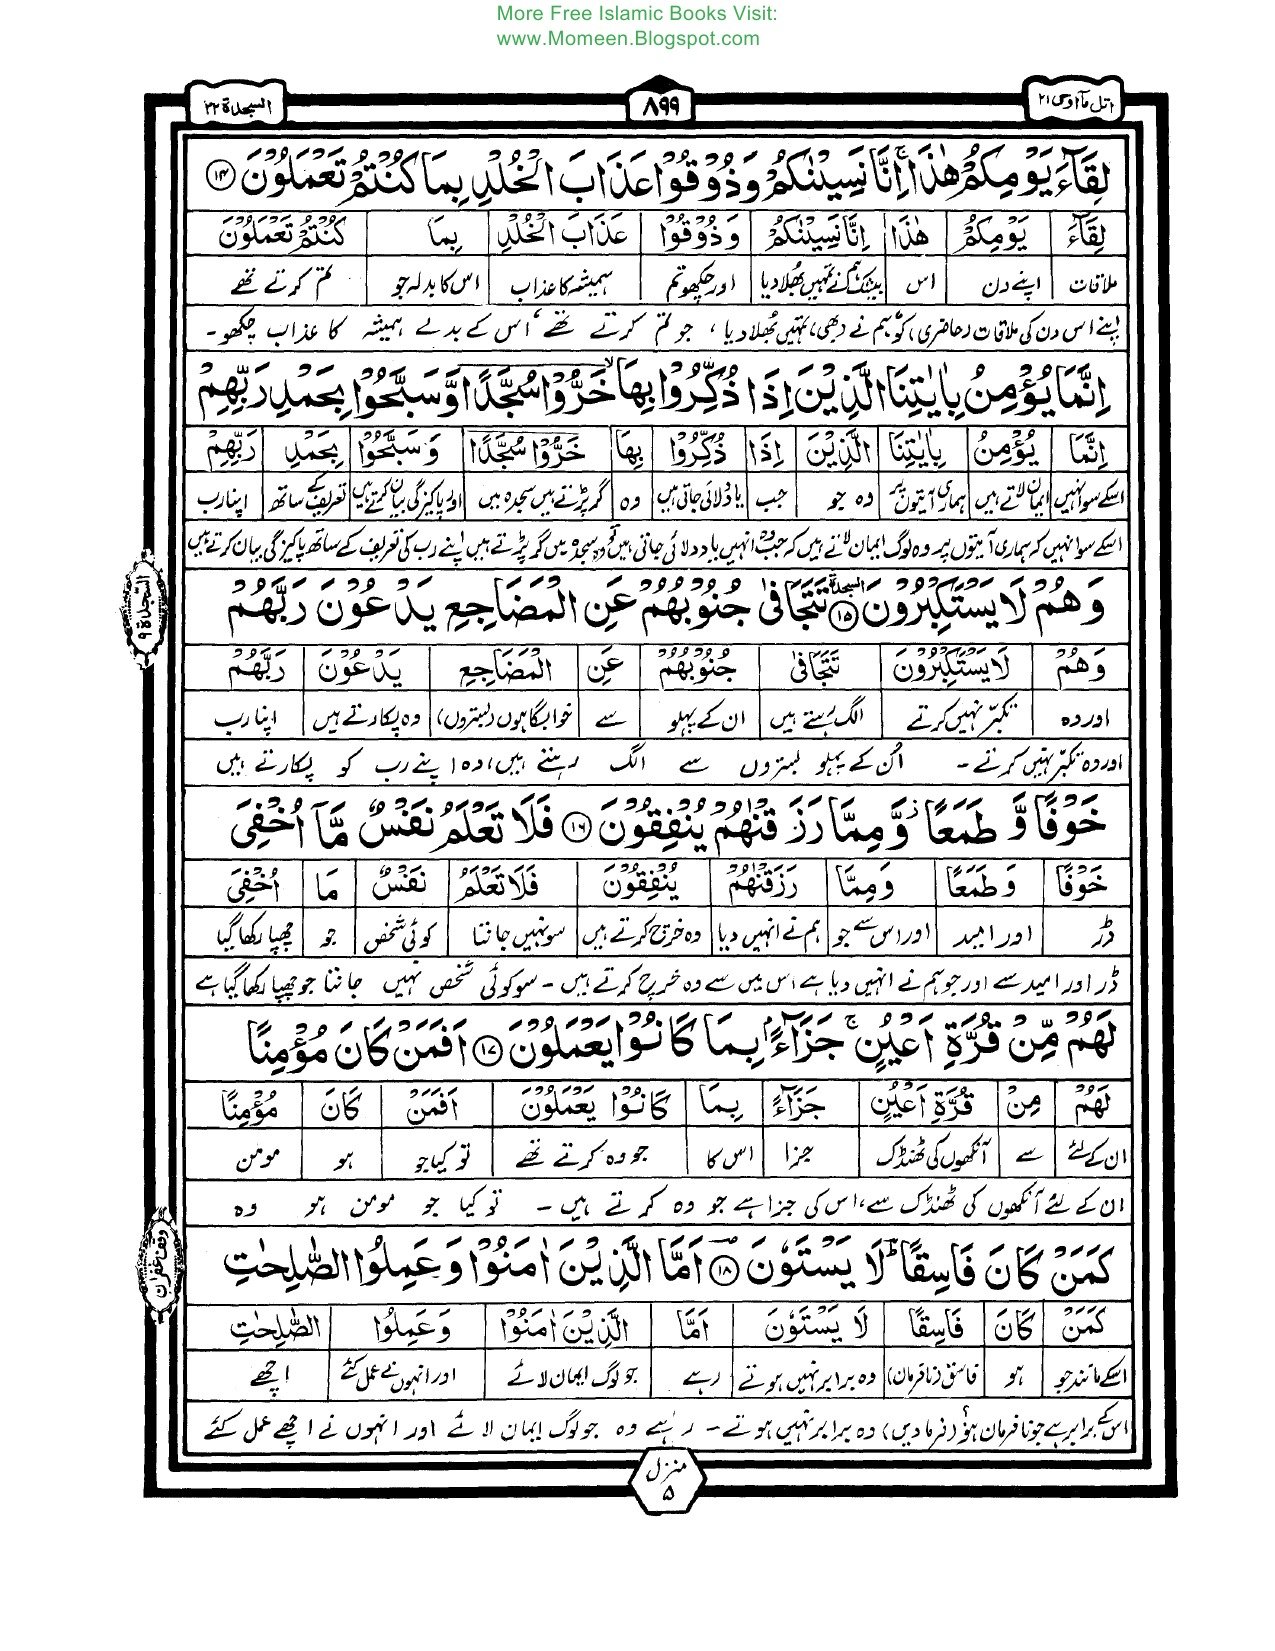 More Free Islamic Books Visit:
www.Momeen.Blogspot.com
اتل مآ اوحی ۲۱
۸۹۹
السجدة ۳۲
لِقَآءَ يَوْمِكُمْ هٰذَا ۚ اِنَّا نَسِيْنٰكُمْ وَذُوْقُوْا عَذَابَ الْخُلْدِ بِمَا كُنْتُمْ تَعْمَلُوْنَ ۱۴
لِقَآءَ يَوْمِكُمْ هٰذَا اِنَّا نَسِيْنٰكُمْ وَذُوْقُوْا عَذَابَ الْخُلْدِ بِمَا كُنْتُمْ تَعْمَلُوْنَ
ملاقات اپنے دن اس بیشک ہم نے تمہیں بھلا دیا اور چکھو تم ہمیشہ کا عذاب اس کا بدلہ جو تم کرتے تھے
اپنے اس دن کی ملاقات (حاضری) کو، ہم نے (بھی) تمہیں بھلا دیا، جو تم کرتے تھے، اس کے بدلے ہمیشہ کا عذاب چکھو۔
اِنَّمَا يُؤْمِنُ بِاٰيٰتِنَا الَّذِيْنَ اِذَا ذُكِّرُوْا بِهَا خَرُّوْا سُجَّدًا وَّسَبَّحُوْا بِحَمْدِ رَبِّهِمْ
اِنَّمَا يُؤْمِنُ بِاٰيٰتِنَا الَّذِيْنَ اِذَا ذُكِّرُوْا بِهَا خَرُّوْا سُجَّدًا وَسَبَّحُوْا بِحَمْدِ رَبِّهِمْ
اسکے سوا نہیں ایمان لاتے ہیں ہماری آیتوں پر وہ جو جب یاد دلائی جاتی ہیں وہ گر پڑتے ہیں سجدہ میں اور پاکیزگی بیان کرتے ہیں تعریف کے ساتھ اپنا رب
اسکے سوا نہیں کہ ہماری آیتوں پر وہ لوگ ایمان لاتے ہیں کہ جب وہ انہیں یاد دلائی جاتی ہیں تو وہ سجدہ میں گر پڑتے ہیں اپنے رب کی تعریف کے ساتھ پاکیزگی بیان کرتے ہیں
السجدة ۹
وَهُمْ لَا يَسْتَكْبِرُوْنَ السجدة ۱۵ تَتَجَافٰى جُنُوْبُهُمْ عَنِ الْمَضَاجِعِ يَدْعُوْنَ رَبَّهُمْ
وَهُمْ لَا يَسْتَكْبِرُوْنَ تَتَجَافٰى جُنُوْبُهُمْ عَنِ الْمَضَاجِعِ يَدْعُوْنَ رَبَّهُمْ
اور وہ تکبر نہیں کرتے الگ رہتے ہیں ان کے پہلو سے خوابگاہوں (بستروں) وہ پکارتے ہیں اپنا رب
اور وہ تکبر نہیں کرتے۔ اُن کے پہلو بستروں سے الگ رہتے ہیں، وہ اپنے رب کو پکارتے ہیں
خَوْفًا وَّ طَمَعًا ۚ وَّمِمَّا رَزَقْنٰهُمْ يُنْفِقُوْنَ ۱۶ فَلَا تَعْلَمُ نَفْسٌ مَّآ اُخْفِيَ
خَوْفًا وَطَمَعًا وَمِمَّا رَزَقْنٰهُمْ يُنْفِقُوْنَ فَلَا تَعْلَمُ نَفْسٌ مَا اُخْفِيَ
ڈر اور امید اور اس سے جو ہم نے انہیں دیا وہ خرچ کرتے ہیں سو نہیں جانتا کوئی شخص جو چھپا رکھا گیا
ڈر اور امید سے اور جو ہم نے انہیں دیا ہے اس میں سے وہ خرچ کرتے ہیں۔ سو کوئی شخص نہیں جانتا جو چھپا رکھا گیا ہے
لَهُمْ مِّنْ قُرَّةِ اَعْيُنٍ ۚ جَزَآءًۢ بِمَا كَانُوْا يَعْمَلُوْنَ ۱۷ اَفَمَنْ كَانَ مُؤْمِنًا
لَهُمْ مِنْ قُرَّةِ اَعْيُنٍ جَزَآءً بِمَا كَانُوْا يَعْمَلُوْنَ اَفَمَنْ كَانَ مُؤْمِنًا
ان کے لئے سے آنکھوں کی ٹھنڈک جزا اس کا جو وہ کرتے تھے تو کیا جو ہو مومن
ان کے لئے آنکھوں کی ٹھنڈک سے، اس کی جزا ہے جو وہ کرتے ہیں۔ تو کیا جو مومن ہو وہ
وقف غفران
كَمَنْ كَانَ فَاسِقًا ؕ لَا يَسْتَوٗنَ ۱۸ اَمَّا الَّذِيْنَ اٰمَنُوْا وَعَمِلُوا الصّٰلِحٰتِ
كَمَنْ كَانَ فَاسِقًا لَا يَسْتَوٗنَ اَمَّا الَّذِيْنَ اٰمَنُوْا وَعَمِلُوا الصّٰلِحٰتِ
اسکے مانند جو ہو فاسق (نافرمان) وہ برابر نہیں ہوتے رہے جو لوگ ایمان لائے اور انہوں نے عمل کئے اچھے
اس کے برابر ہے جو نافرمان ہو؟ (فرما دیں) وہ برابر نہیں ہوتے۔ رہے وہ جو لوگ ایمان لائے اور انہوں نے اچھے عمل کئے
منزل ۵